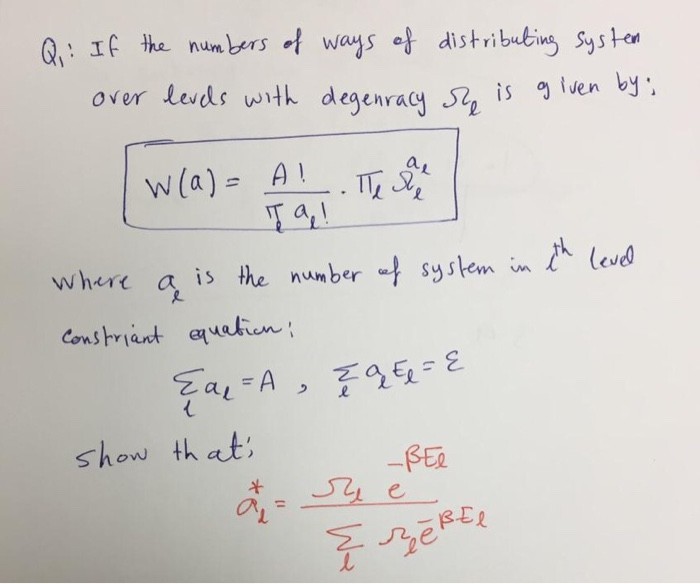 Q₁: If the numbers of ways of distributing system
over levels with degenracy Ωₗ is given by;
W(a) = A! / πₗ aₗ! · πₗ Ωₗ^aₗ
where aₗ is the number of system in lᵗʰ level
constriant equation:
Σₗ aₗ = A , Σₗ aₗ Eₗ = ε
show that;
aₗ* = Ωₗ e^-βEₗ / Σₗ Ωₗ e^-βEₗ